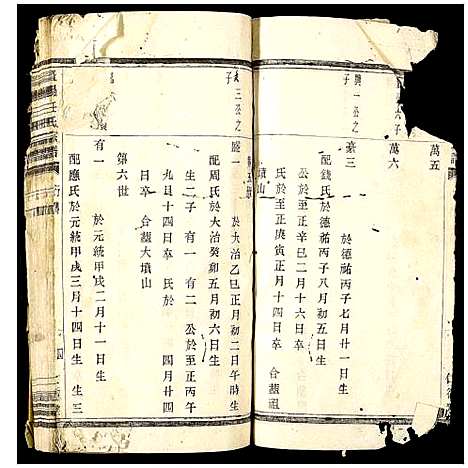 萬五
萬六
萬三
興一公之
子
於德祐丙子七月廿一日生
配錢氏於德祐丙子八月初五日生
公於至正辛巳二月十六日卒
氏於至正庚寅正月十四日卒 合葬祖
墳山
三公之
子
盛一 於大治乙巳正月初二日午時生
配周氏於大治癸卯五月初六日生
生二子 有一 有二 公於至正丙午
九月十四日卒 氏於 四月廿四
日卒 合葬大墳山
第六世
有一 於元統甲戌二月十一日生
配應氏於元統甲戌三月十四日生 生三